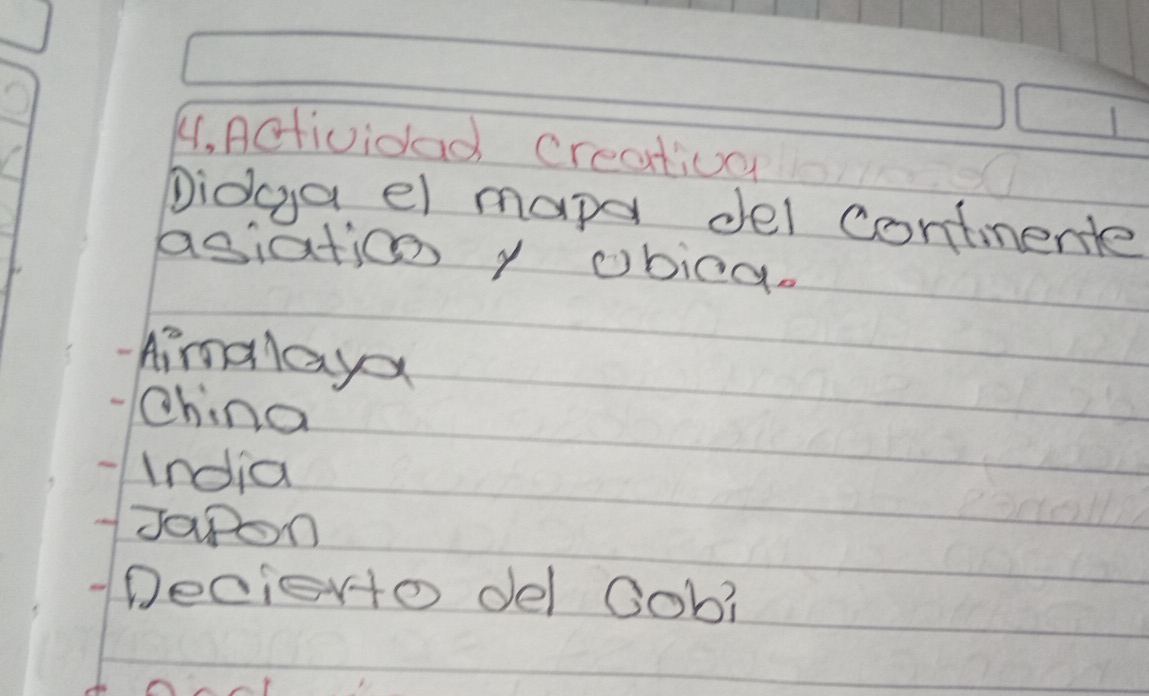 4. Actividad Creativa
Didga el mapa del Continente
asiatico y Obica.
- Aimalaya
- China
- India
- Japon
- Decierto del Gobi